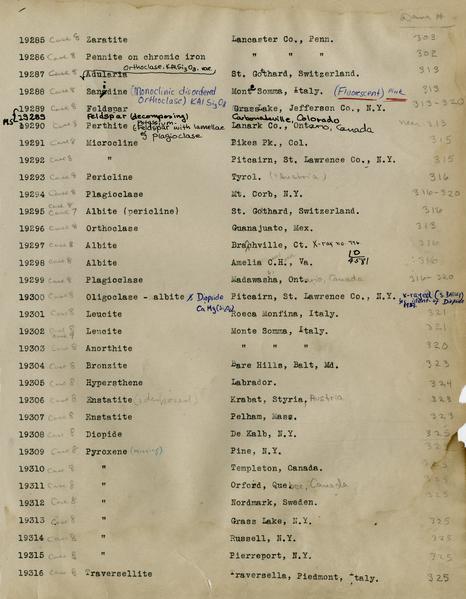 Dana #
19285 Case 8 Zaratite Lancaster Co., Penn. 303
19286 Case 8 Pennite on chromic iron " " " 302
Orthoclase. KAlSi3O8
19287 Case 8 Adularia St. Gothard, Switzerland. 313
19288 Case 8 Sanidine (Monoclinic disordered Orthoclase) KAlSi3O8 Mont Somma, Italy. (Fluorescent) Pink 313
19289 Case 8 Feldspar Grass Lake, Jefferson Co., N.Y. 313-320
MS 19289 Feldspar (decomposing) Carbondaleville, Colorado
19290 Case 8 Perthite (Feldspar with lamellae of plagioclase Lanark Co., Ontario, Canada 313
19291 Case 8 Microcline Pikes Pk., Col. 315
19292 Case 8 " Pitcairn, St. Lawrence Co., N.Y. 315
19293 Case 8 Pericline Tyrol. (Austria) 316
19294 Case 8 Plagioclase Mt. Corb, N.Y. 316-320
19295 Case 7 Albite (pericline) St. Gothard, Switzerland. 316
19296 Case 8 Orthoclase Guanajuato, Mex. 313
19297 Case 8 Albite Branchville, Ct. X-ray no. 316
19298 Case 8 Albite Amelia C.H., Va. 316
19299 Case 8 Plagioclase Madawasha, Ontario, Canada 316-320
19300 Case 8 Oligoclase - albite & Diopside CaMg(SiO3)2 Pitcairn, St. Lawrence Co., N.Y. X-rayed
19301 Case 8 Leucite Rocca Monfina, Italy. 321
19302 Case 8 Leucite Monte Somma, Italy. 321
19303 Case 8 Anorthite " " " 320
19304 Case 8 Bronzite Bare Hills, Balt, Md. 323
19305 Case 8 Hypersthene Labrador. 324
19306 Case 8 Enstatite Krabat, Styria, Austria 323
19307 Case 8 Enstatite Pelham, Mass. 323
19308 Case 8 Diopide De Kalb, N.Y. 325
19309 Case 8 Pyroxene (missing) Pine, N.Y. 325
19310 Case 8 " Templeton, Canada. 325
19311 Case 8 " Orford, Quebec, Canada 325
19312 Case 8 " Nordmark, Sweden. 325
19313 Case 8 " Grass Lake, N.Y. 325
19314 Case 8 " Russell, N.Y. 325
19315 Case 8 " Pierreport, N.Y. 325
19316 Case 8 Traversellite Traversella, Piedmont, Italy. 325